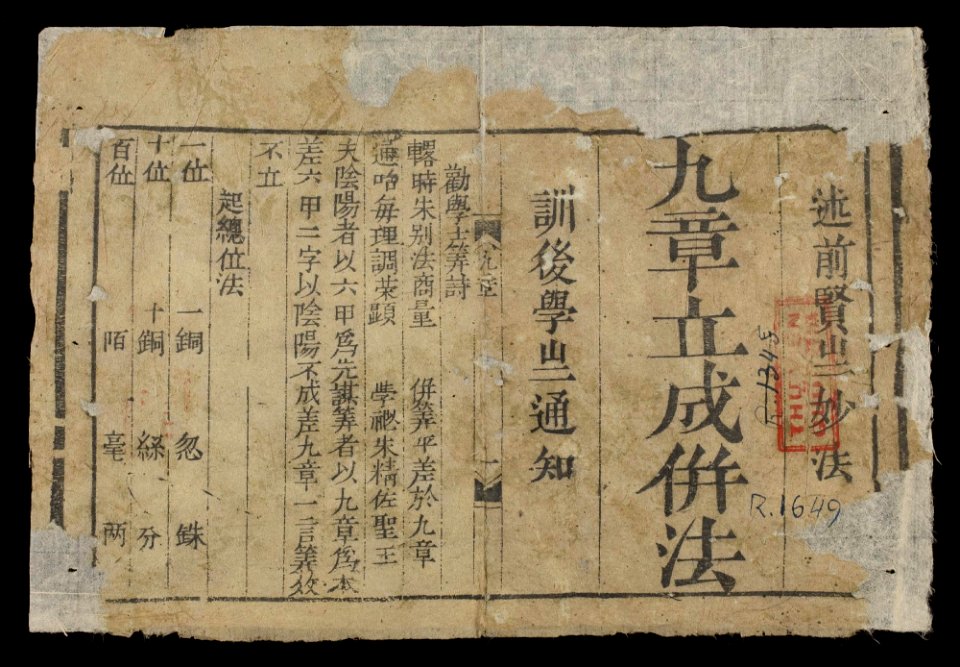 述前賢㞢妙法
九章立成併法
訓後學㞢通知
九章
一
勸學士筭詩
時朱別法商量 併筭平差於九章
每理調 題 學 朱精佐聖王
夫陰陽者以六甲爲先 筭者以九章爲本
差六甲二字以陰陽不成差九章一言筭效
不立
起總位法
一位 一銅 忽 銖
十位 十銅 絲 分
百位 陌 毫 両
R.1345
R.1649